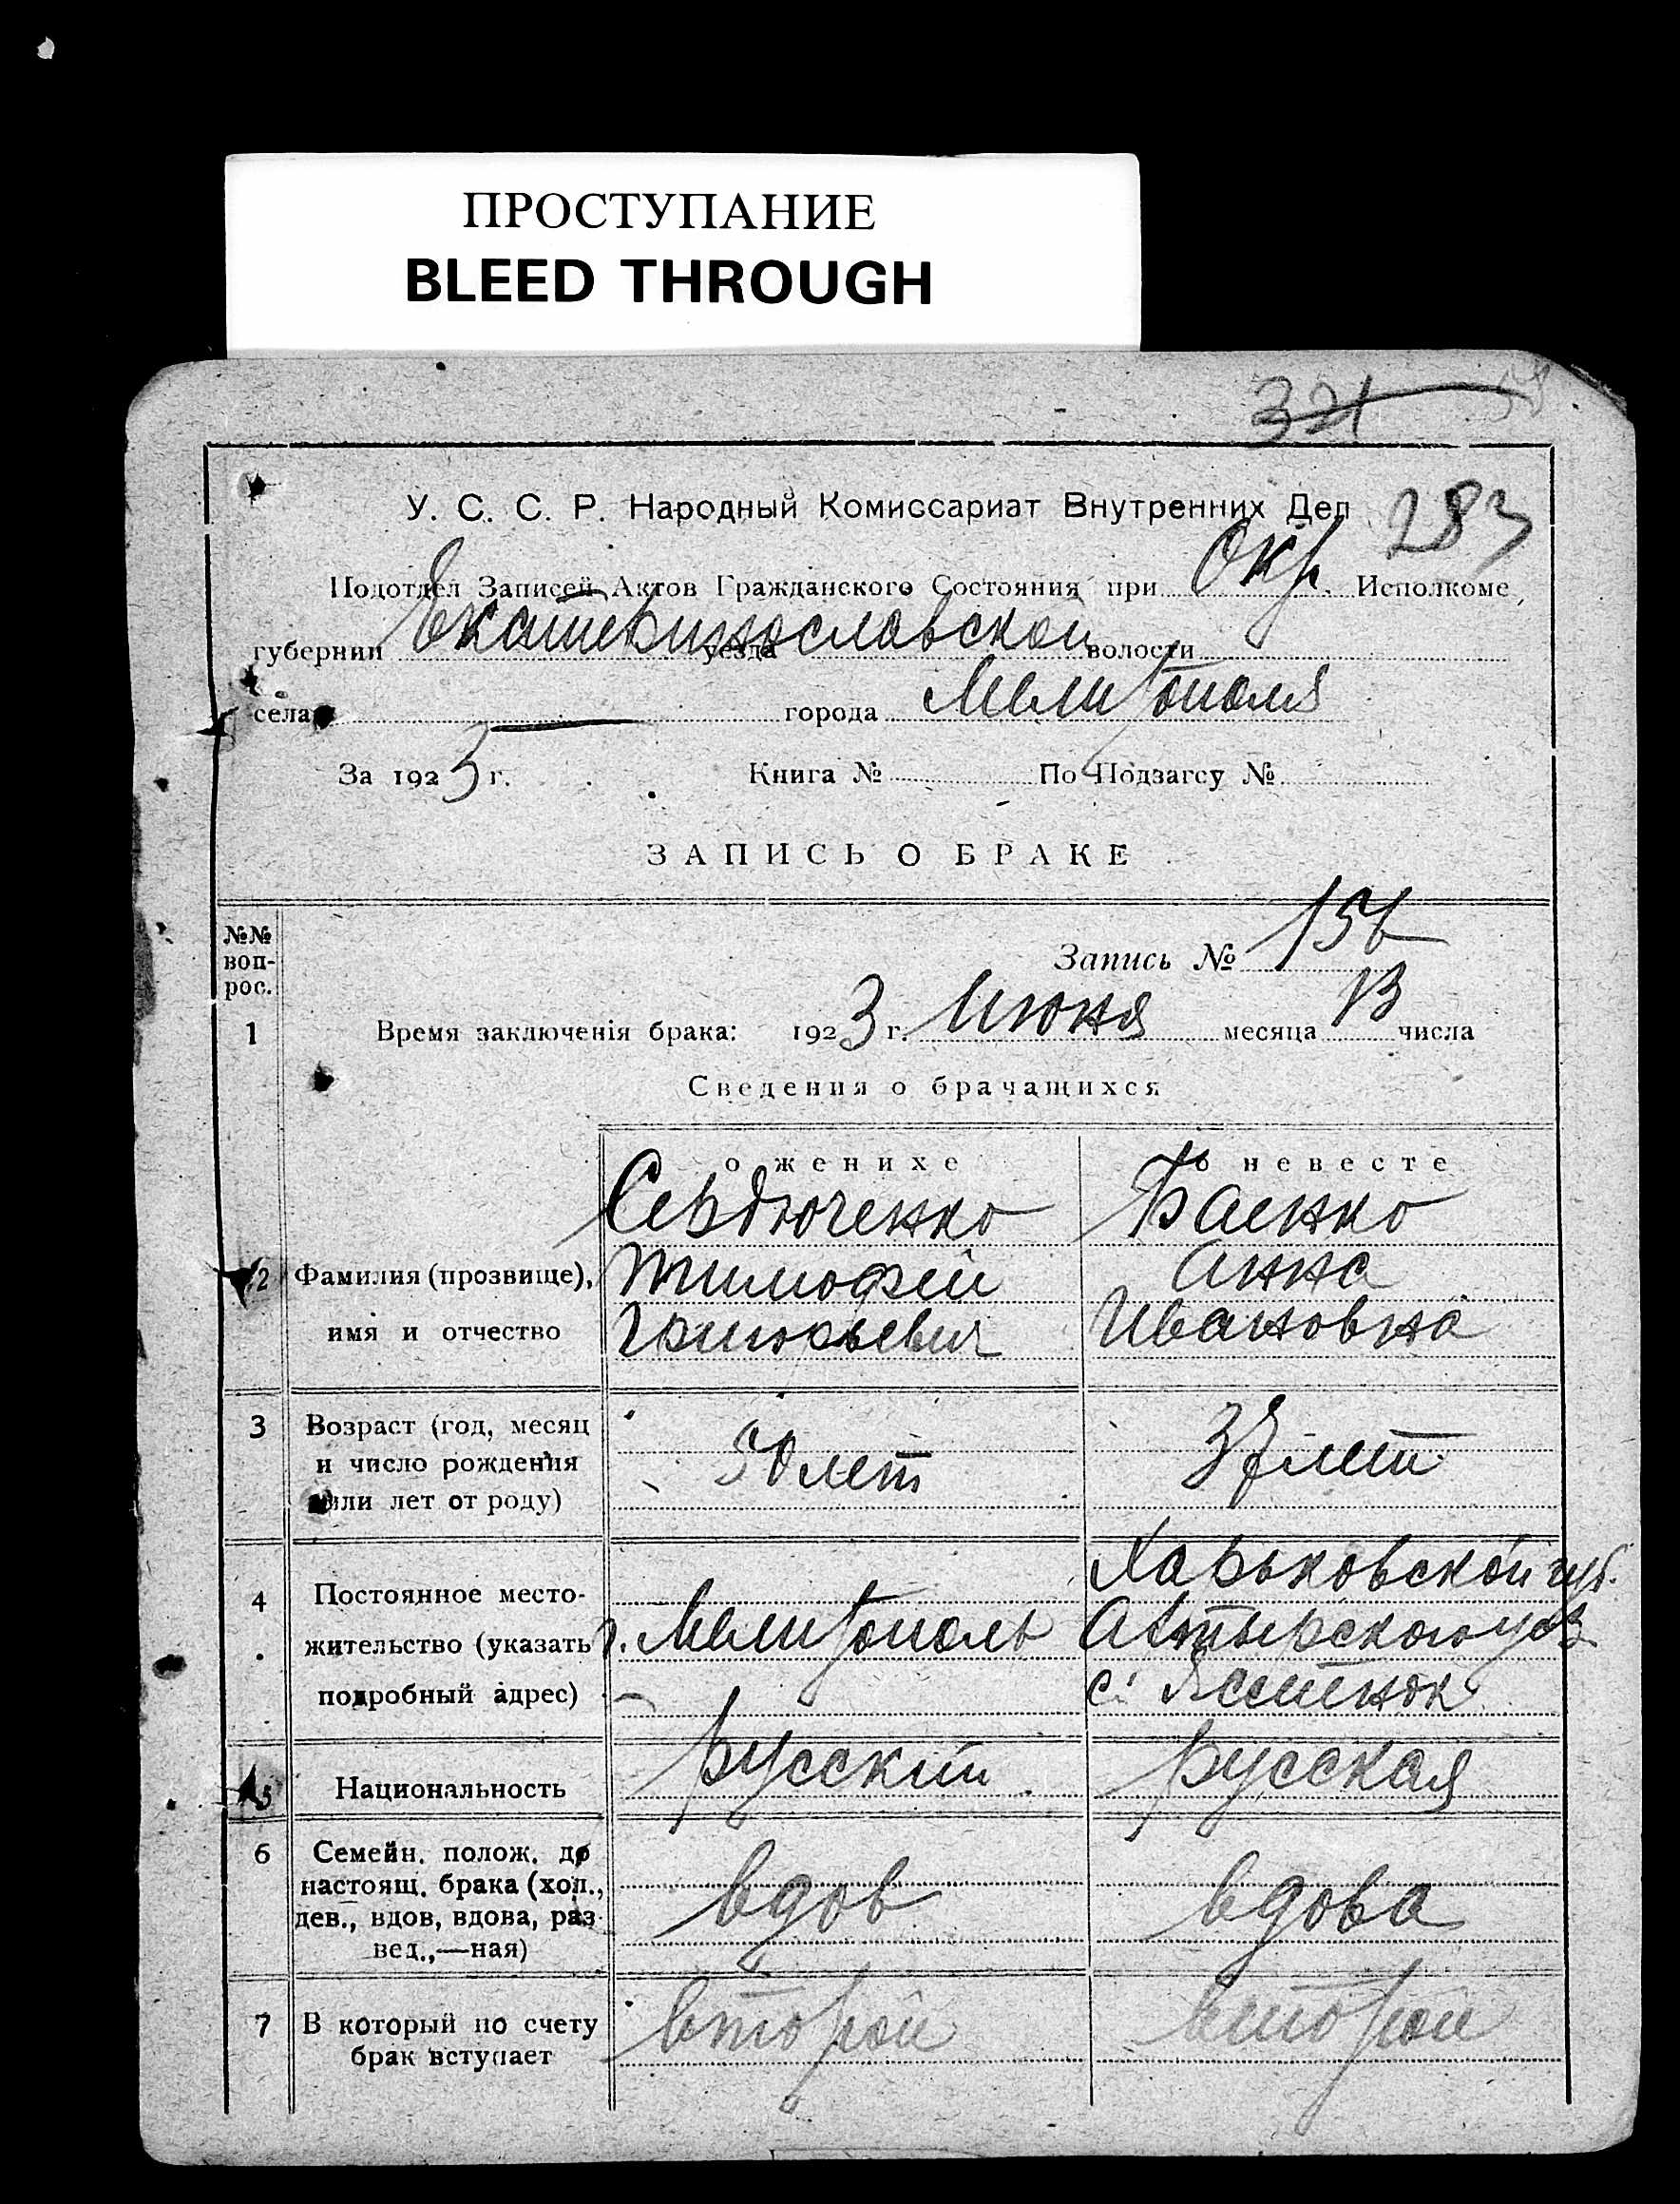 ПРОСТУПАНИЕ
BLEED THROUGH
321 58
У. С. С. Р. Народный Комиссариат Внутренних Дел 283
Подотдел Записей Актов Гражданского Состояния при Окр. Исполкоме,
губернии Екатеринославской уезда волости
села — города Мелитополя
За 1923 г. Книга № По Подзагсу №
ЗАПИСЬ О БРАКЕ
№№ воп- рос.
Запись № 156
1 Время заключенія брака: 1923 г. Июня месяца 13 числа
Сведения о брачащихся
о женихе о невесте
Сердюченко Баенко
2 Фамилия (прозвище), Тимофей Анна
имя и отчество Григорьевич Ивановна
3 Возраст (год, месяц
и число рождения 50 лет 37 лет
или лет от роду)
Харьковской губ.
4 Постоянное место-
жительство (указать г. Мелитополь Ахтырского уез.
подробный адрес) с.
5 Национальность русский русская
6 Семейн. полож. до
настоящ. брака (хол., вдов вдова
дев., вдов, вдова, раз-
вед.,—ная)
7 В который по счету второй второй
брак вступает